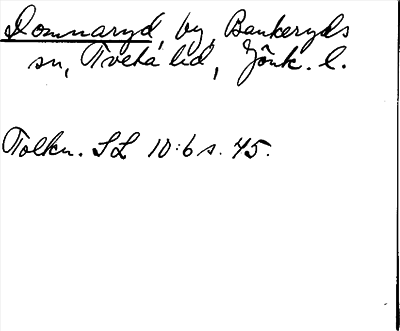 Domnaryd, by, Bankeryds
sn, Tveta hd, Jönk. l.
Tolkn. SL 10:6 s. 45.